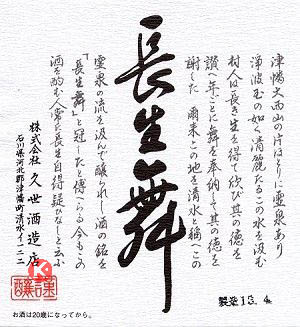 津幡火西山の片ほとりに霊泉あり
浄波玉の如く清麗たるこの水を汲む
村人は長き生を得て欣び其の徳を
讃へ年ごとに舞を奉納して其の徳を
謝した 爾来この地を清水と稱へこの
長生舞
霊泉の流を汲んで醸られし酒の銘を
「長生舞」と冠したと傳へらる 今もこの
酒を酌む人常に長生自得疑ひなしと云ふ
株式会社 久世酒造店
石川県河北郡津幡町清水イ一二二
製造13.4
お酒は20歳になってから。